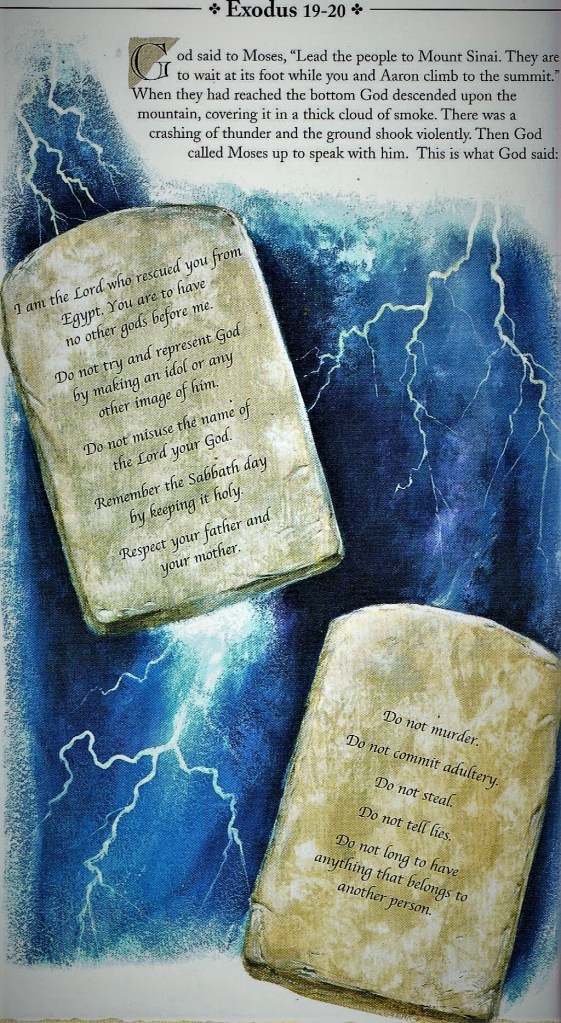 Exodus 19-20
God said to Moses, “Lead the people to Mount Sinai. They are
to wait at its foot while you and Aaron climb to the summit.”
When they had reached the bottom God descended upon the
mountain, covering it in a thick cloud of smoke. There was a
crashing of thunder and the ground shook violently. Then God
called Moses up to speak with him. This is what God said:
I am the Lord who rescued you from
Egypt. You are to have
no other gods before me.
Do not try and represent God
by making an idol or any
other image of him.
Do not misuse the name of
the Lord your God.
Remember the Sabbath day
by keeping it holy.
Respect your father and
your mother.
Do not murder.
Do not commit adultery.
Do not steal.
Do not tell lies.
Do not long to have
anything that belongs to
another person.